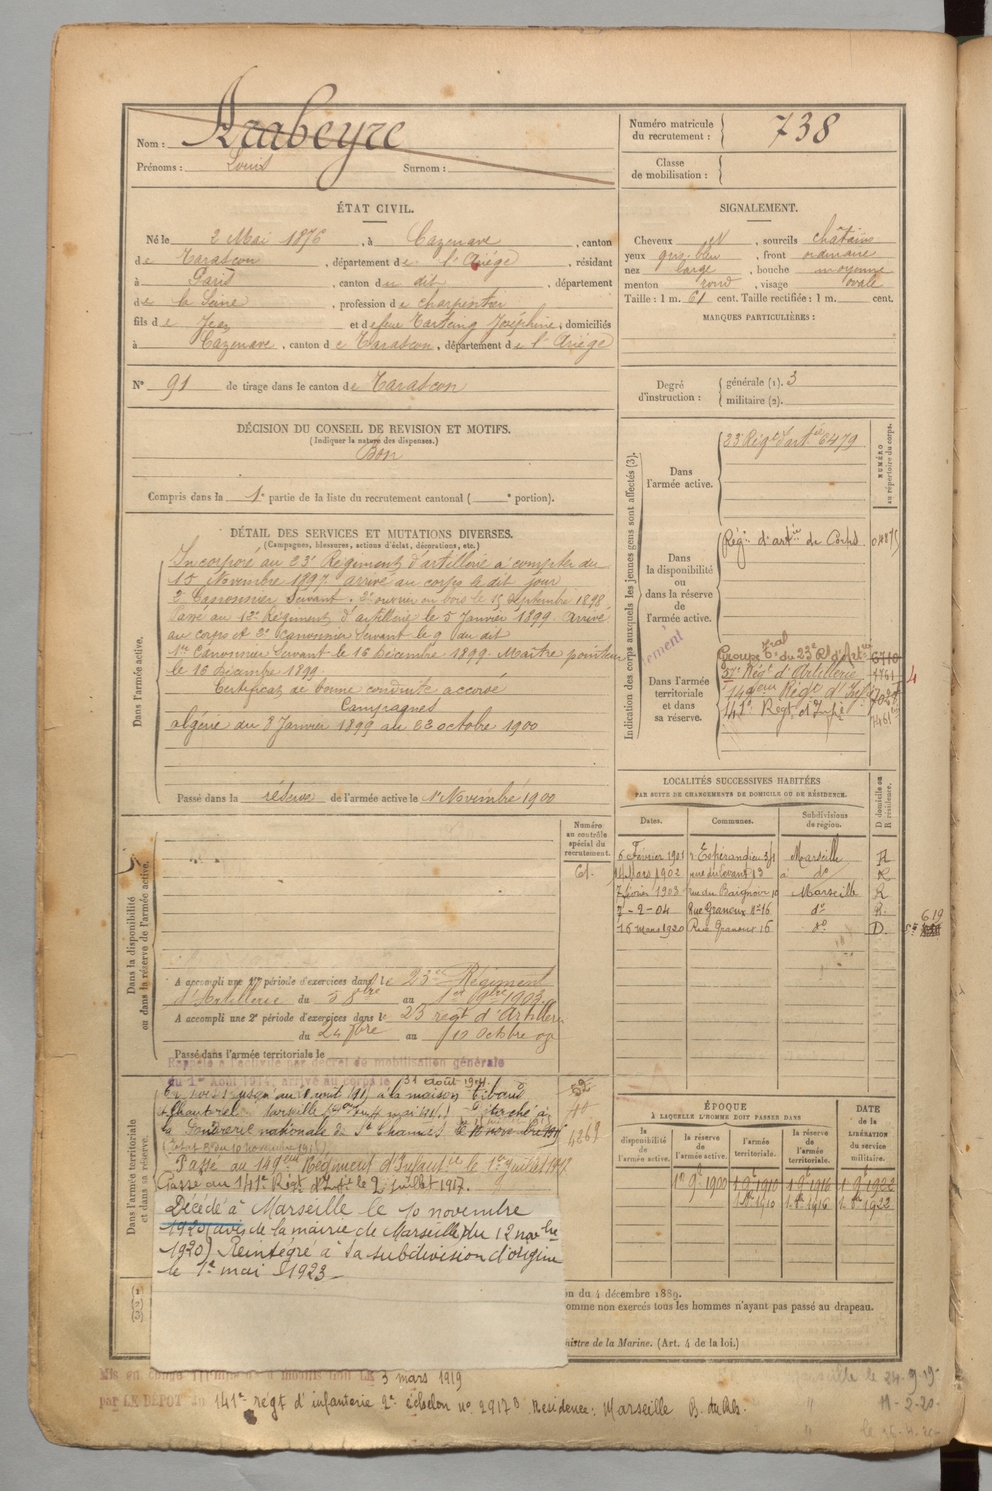 Nom : Arabeyre
Prénoms : Louis Surnom :
Numéro matricule du recrutement : 738
Classe de mobilisation :
ÉTAT CIVIL.
Né le 2 Mai 1876, à Cazenave, canton
de Tarascon, département de l'Ariège, résidant
à Paris, canton du dit, département
de la Seine, profession de charpentier
fils de Jean et de feue Joséphine, domiciliés
à Cazenave, canton de Tarascon, département de l'Ariège
N° 91 de tirage dans le canton de Tarascon
SIGNALEMENT.
Cheveux N, sourcils châtains
yeux gris bleu, front ordinaire
nez large, bouche moyenne
menton rond, visage ovale
Taille : 1 m. 61 cent. Taille rectifiée : 1 m. cent.
MARQUES PARTICULIÈRES :
Degré d'instruction : générale (1). 3
militaire (2).
DÉCISION DU CONSEIL DE REVISION ET MOTIFS.
(Indiquer la nature des dispenses.)
Bon
Compris dans la 1e partie de la liste du recrutement cantonal ( e portion).
DÉTAIL DES SERVICES ET MUTATIONS DIVERSES.
(Campagnes, blessures, actions d'éclat, décorations, etc.)
Dans l'armée active.
Incorporé au 23e Régiment d'artillerie à compter du
15 Novembre 1897 arrivé au corps le dit jour
2e Canonnier Servant. 2e ouvrier en bois le 15 Septembre 1898
Passé au 13e Régiment d'artillerie le 5 Janvier 1899. Arrivé
au corps et 2e Canonnier Servant le 9 du dit
1er Canonnier Servant le 16 Décembre 1899. Maître pointeur
le 16 Décembre 1899.
Certificat de bonne conduite accordé
Campagnes
Algérie du 7 Janvier 1899 au 22 octobre 1900
Passé dans la réserve de l'armée active le 1er Novembre 1900
Indication des corps auxquels les jeunes gens sont affectés (3).
NUMÉRO au répertoire du corps.
Dans l'armée active.
23e Régt d'artie 6479
Dans la disponibilité ou dans la réserve de l'armée active.
Régt d'artie de Corps
Dans l'armée territoriale et dans sa réserve.
Groupe Tral du 23e Rt d'Artie 6710
37e Régt d'Artillerie
149eme Régt d'Infie
141e Regt d'Infie
LOCALITÉS SUCCESSIVES HABITÉES
PAR SUITE DE CHANGEMENTS DE DOMICILE OU DE RÉSIDENCE.
Dates. Communes. Subdivisions de région. D domicile ou R résidence.
6 Février 1901 r Espérandieu 31 Marseille R
14 Mars 1902 rue du Levant 13 à do R
7 février 1903 rue du Baignoir 10 Marseille R
7-2-04 Rue Granoux no 16 do R.
16 mars 1920 Rue Granoux 16 do D.
619
Dans la disponibilité ou dans la réserve de l'armée active.
Numéro au contrôle spécial du recrutement.
61.
A accompli une 1re période d'exercices dans le 23e Régiment
d'Artillerie du 5 8bre au 1er 9bre 1903
A accompli une 2e période d'exercices dans le 23 regt d'Artillerie
du 24 7bre au 10 octobre 07
Passé dans l'armée territoriale le
Rappelé à l'activité par décret de mobilisation générale
du 1er Août 1914, arrivé au corps le 31 août 1914.
Passé au 149eme Régiment d'Infanterie le 1er juillet 1917.
Passé au 141e Régt d'Infie le 2 juillet 1917.
Décédé à Marseille le 10 novembre
1920 (avis de la mairie de Marseille du 12 novbre
1920) Réintégré à la subdivision d'origine
le 1er mai 1923
Dans l'armée territoriale et dans sa réserve.
4269
ÉPOQUE
À LAQUELLE L'HOMME DOIT PASSER DANS
la disponibilité de l'armée active. la réserve de l'armée active. l'armée territoriale. la réserve de l'armée territoriale.
DATE DE LA LIBÉRATION du service militaire.
1er 9e 1900 1er 9e 1910 1er 9e 1916 1er 9e 1922
1er 8e 1910 1er 8e 1916 1er 8e 1922
(1)
(2)
(3)
on du 4 décembre 1889.
omme non exercés tous les hommes n'ayant pas passé au drapeau.
nistre de la Marine. (Art. 4 de la loi.)
3 mars 1919
par LE DEPOT du 141e régt d'infanterie 2e échelon no 29178 Residence : Marseille B. du Rh.
Marseille le 24-9-19
" 11-2-20